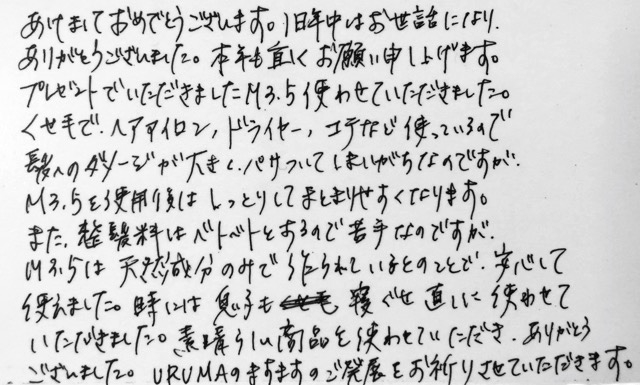 あけましておめでとうございます。旧年中はお世話になり、
ありがとうございました。本年も宜しくお願い申し上げます。
プレゼントでいただきましたM3.5使わせていただきました。
くせ毛で、ヘアアイロン、ドライヤー、コテなど使っているので
髪へのダメージが大きく、パサついてしまいがちなのですが、
M3.5を使用後はしっとりしてまとまりやすくなります。
また、整髪料はベトベトとあるので苦手なのですが、
M3.5は天然成分のみで作られているとのことで、安心して
使えました。時には息子も 寝ぐせ直しに使わせて
いただきました。素晴らしい商品を使わせていただき、ありがとう
ございました。URUMAのますますのご発展をお祈りさせていただきます。